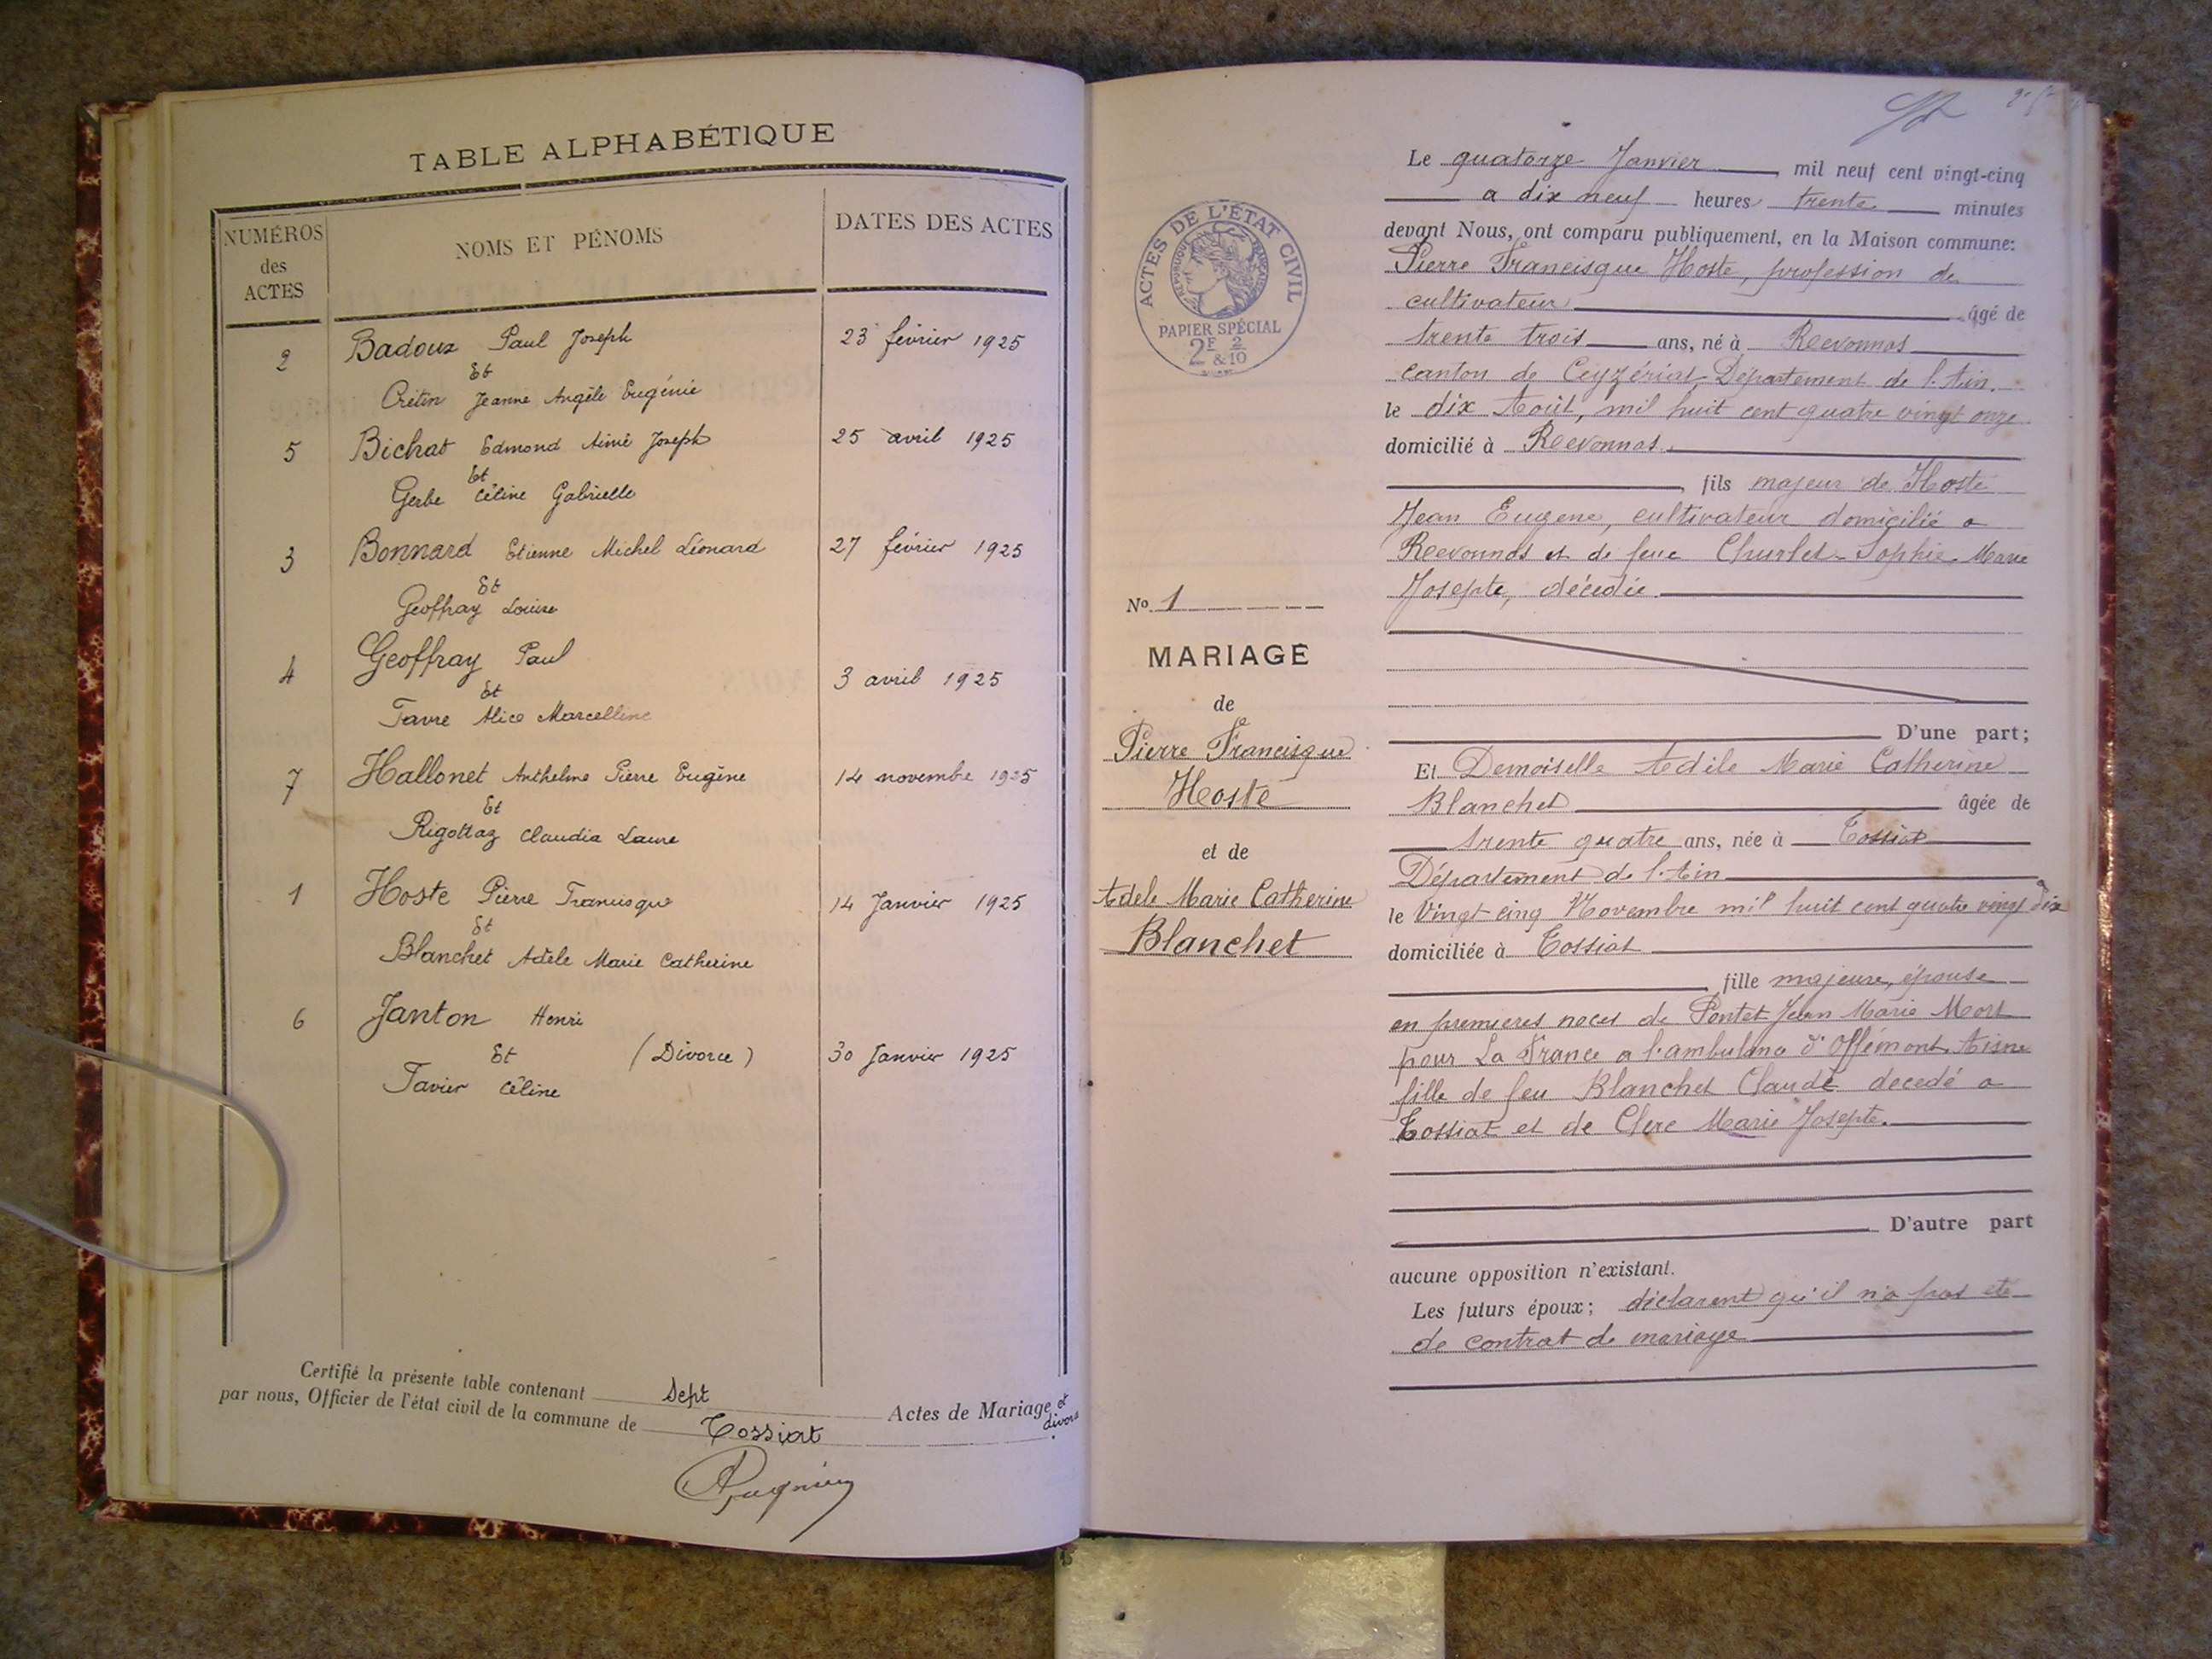 TABLE ALPHABÉTIQUE
NUMÉROS
des
ACTES
NOMS ET PÉNOMS
DATES DES ACTES
2 Badoux Paul Joseph 23 février 1925
Et
Crétin Jeanne Angèle Eugénie
5 Bichat Edmond Aimé Joseph 25 avril 1925
Et
Gerbe Céline Gabrielle
3 Bonnard Etienne Michel Léonard 27 février 1925
Et
Geoffray Louise
4 Geoffray Paul 3 avril 1925
Et
Favre Alice Marcelline
7 Hallonet Anthelme Pierre Eugène 14 novembre 1925
Et
Rigottaz Claudia Laure
1 Hoste Pierre Francisque 14 Janvier 1925
Et
Blanchet Adèle Marie Catherine
6 Janton Henri
Et (Divorce) 30 Janvier 1925
Tavier Céline
Certifié la présente table contenant Sept Actes de Mariage et divorce
par nous, Officier de l'état civil de la commune de Tossiat.
ACTES DE L'ÉTAT CIVIL
RÉPUBLIQUE FRANÇAISE
PAPIER SPÉCIAL
2F 2
& 10
No 1
MARIAGE
de
Pierre Francisque
Hoste
et de
Adele Marie Catherine
Blanchet
Le quatorze Janvier mil neuf cent vingt-cinq
a dix neuf heures trente minutes
devant Nous, ont comparu publiquement, en la Maison commune:
Pierre Francisque Hoste, profession de
cultivateur âgé de
trente trois ans, né à Revonnas
canton de Ceyzériat Département de l'Ain.
le dix Août, mil huit cent quatre vingt onze
domicilié à Revonnas.
fils majeur de Hoste
Jean Eugene, cultivateur domicilié a
Revonnas et de feue Churlet Sophie Marie
Josepte, décedée.
D'une part;
Et Demoiselle Adèle Marie Catherine
Blanchet âgée de
trente quatre ans, née à Tossiat
Département de l'Ain
le Vingt cinq Novembre mil huit cent quatre vingt dix
domiciliée à Tossiat
fille majeure, épouse
en premieres noces de Pontet Jean Marie Mort
pour La France a l'ambulance d'Offémont Aisne
fille de feu Blanchet Claude decedé a
Tossiat et de Clerc Marie Josepte.
D'autre part
aucune opposition n'existant.
Les futurs époux; déclarent qu'il n'a pas été
de contrat de mariage